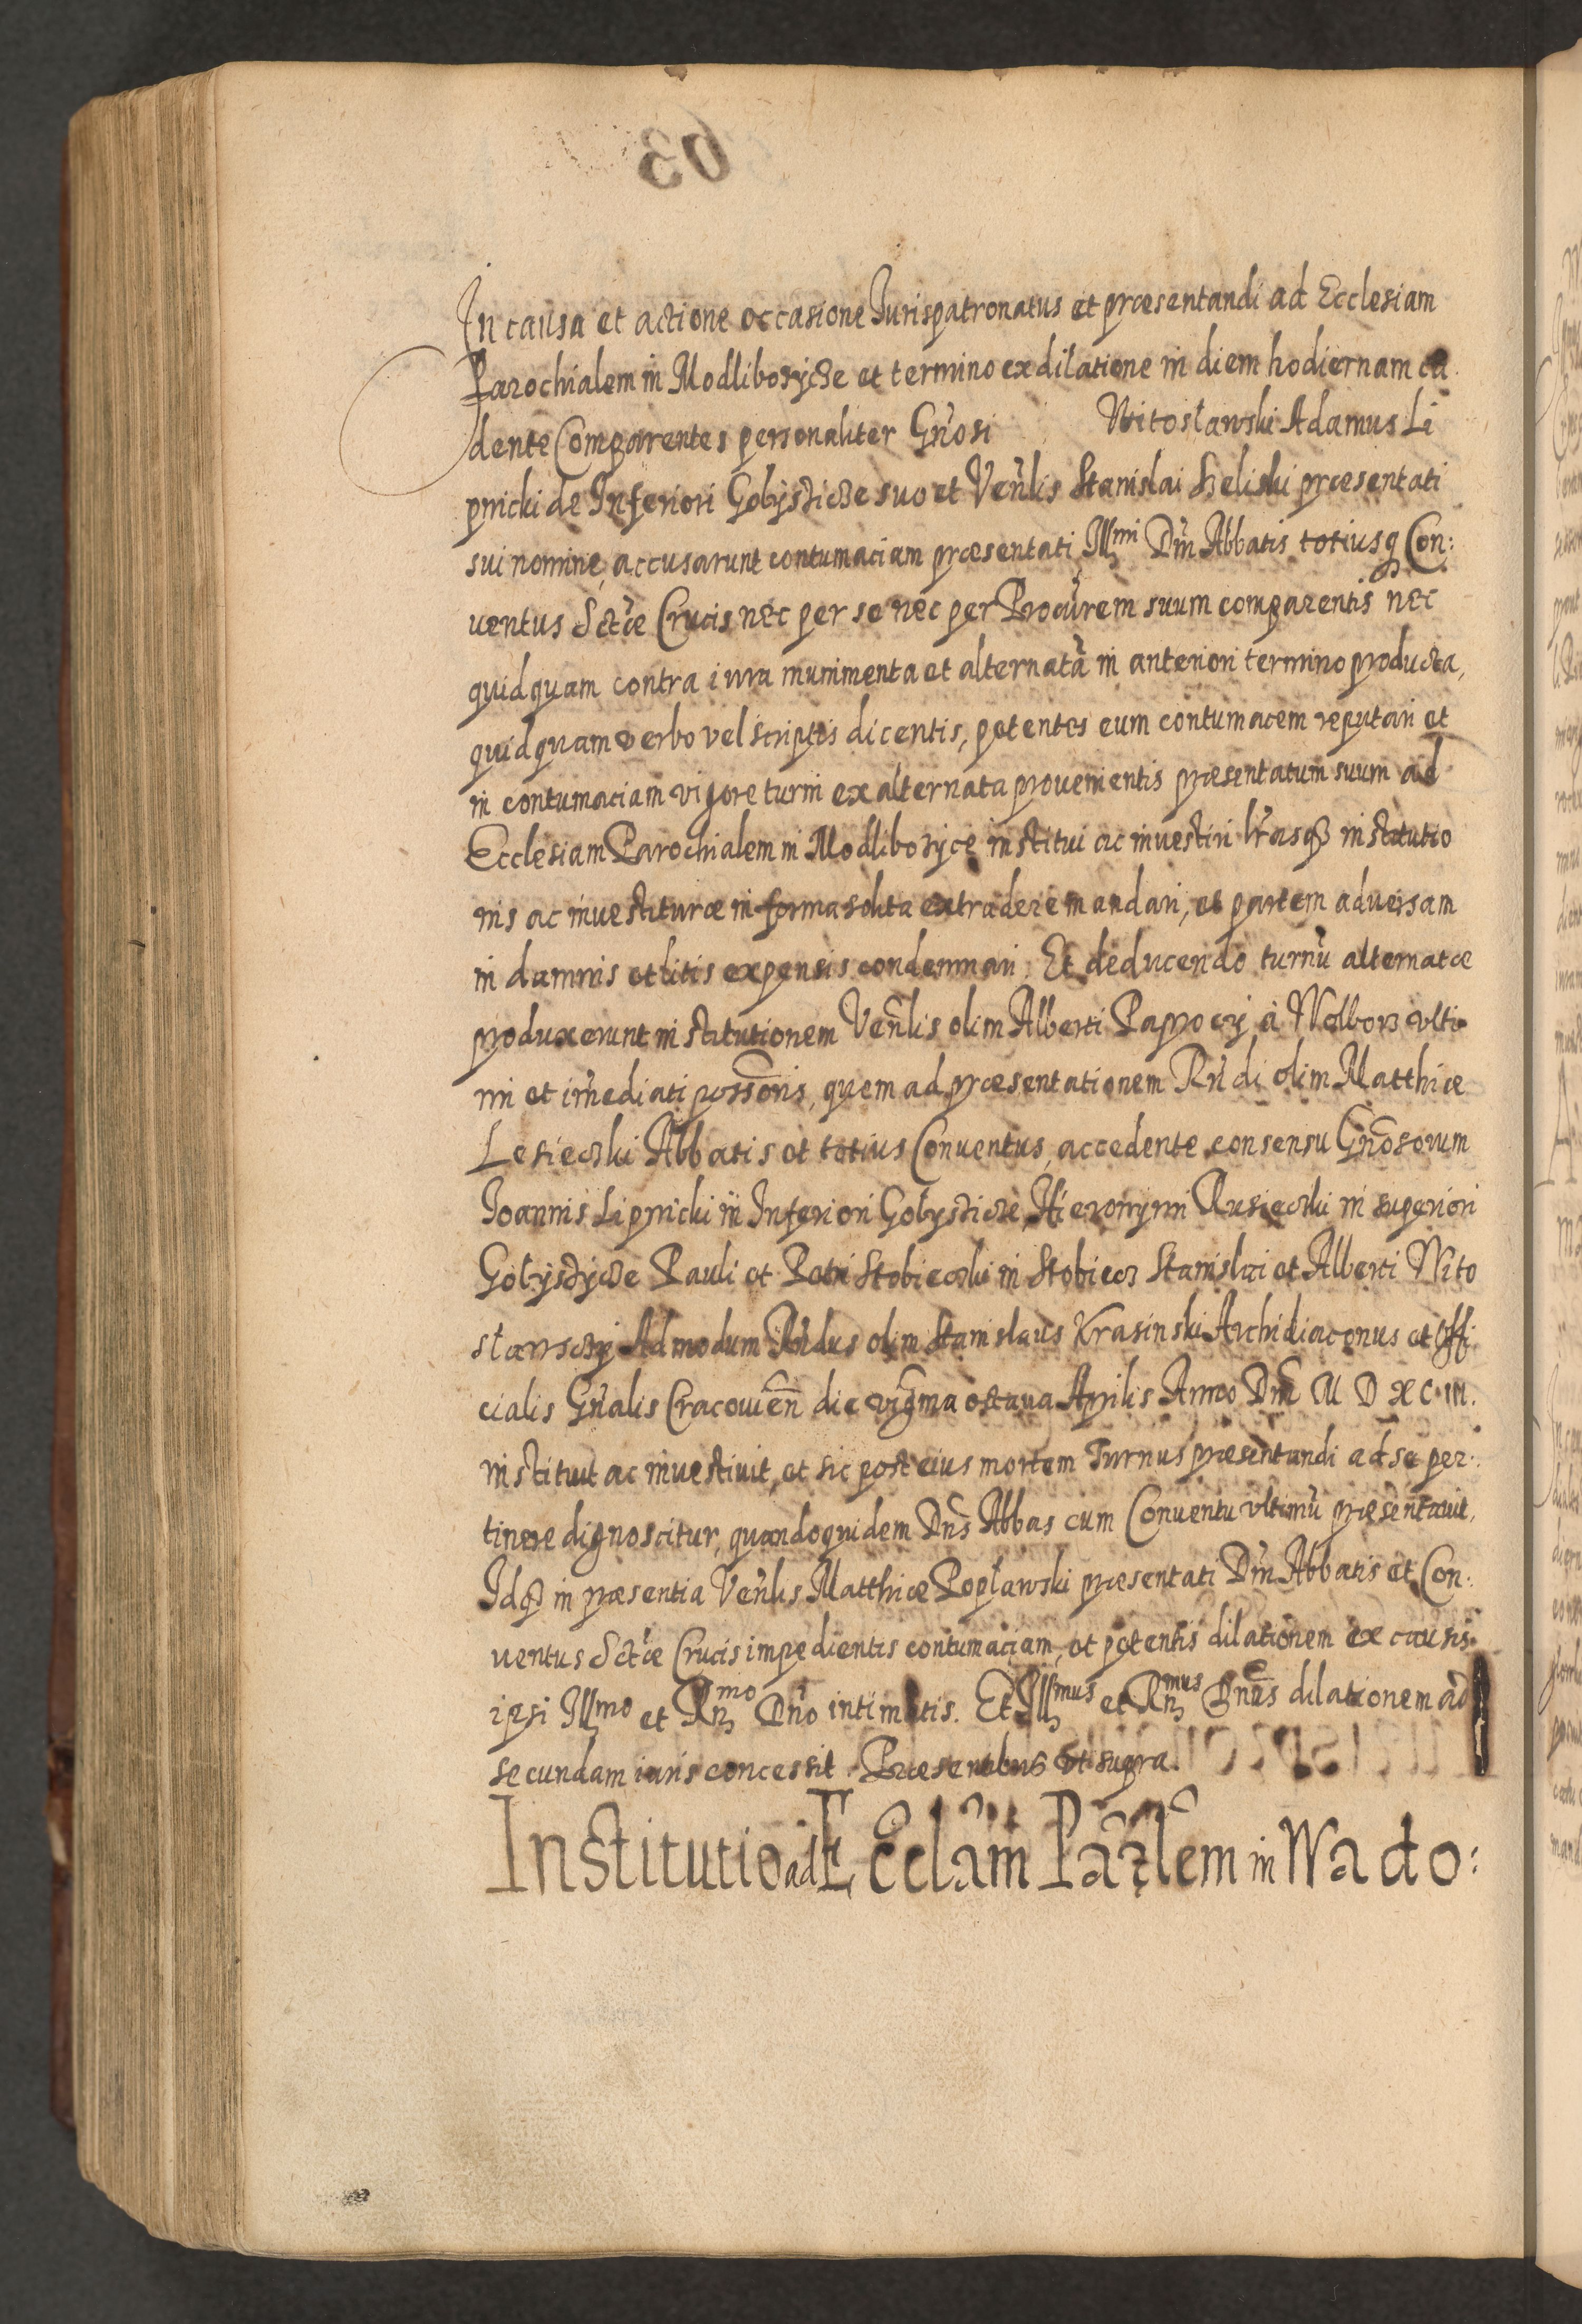 In causa et actione occasione Jurispatronatus et præsentandi ad Ecclesiam
Parochialem in Modliborycze et termino ex dilatione in diem hodiernam ca
dente Comparentes personaliter Gñosi Witosławski Adamus Li
pnicki de Inferiori Gobysticze suo et Veñlis Stanislai præsentati
sui nomine, accusarunt contumaciam præsentati Illmi Dñi Abbatis totiusq Con:
uentus Sctæ Crucis nec per se nec per Procurem suum comparentis nec
quidquam contra iura munimenta et alternatã in anteriori termino producta,
quidquam verbo vel scriptis dicentis, petentes eum contumacem reputari et
in contumaciam vigore turni ex alternata prouenientis præsentatum suum ad
Ecclesiam Parochialem in Modliboryce institui ac inuestiri lrasqз institutio
nis ac inuestituræ in forma solita extradere mandari, et partem aduersam
in damnis et litis expensis condemnari. Et deducendo turnũ alternatæ
produxerunt institutionem Veñlis olim Alberti Paprocij à Wolborz vlti
mi et im̃ediati possõris, quem ad præsentationem Rñdi olim Matthiæ
Lesiecki Abbatis et totius Conuentus, accedente consensu Gñosorum
Ioannis Lipnicki in Inferiori Gobysticze, Hieronymi Rusiecki in superiori
Gobystycze Pauli et Petri Stobiecki in Stobiecz Stanislai et Alberti Wito
sławscij Admodum Rñdus olim Stanislaus Krasinski Archidiaconus et Offi
cialis Gñalis Cracouieñ die vigma octaua Aprilis Anno Dñi M D X C III.
instituit ac inuestiuit, et sic post eius mortem Turnus præsentandi ad se per:
tinere dignoscitur, quandoquidem Dñs Abbas cum Conuentu vltimũ præsentauit,
Idqз in præsentia Veñlis Matthiæ Popławski præsentati Dñi Abbatis et Con:
uentus Sctæ Crucis impedientis contumaciam, et petentis dilationem ex causis
ipsi Illmo et Rnmo Dño intimatis. Et Illmus et Rnmus Dñs dilationem ad
secundam iuris concessit. Præsentibus vt supra.
Institutio ad Ecclãm Parlem in Wado: